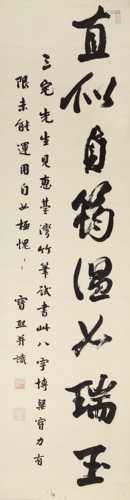 直似貞筠溫如瑞玉
三宅先生見惠臺灣竹筆試書此八字博粲寶力有
限未能運用自如極愧〻
寶熙并識